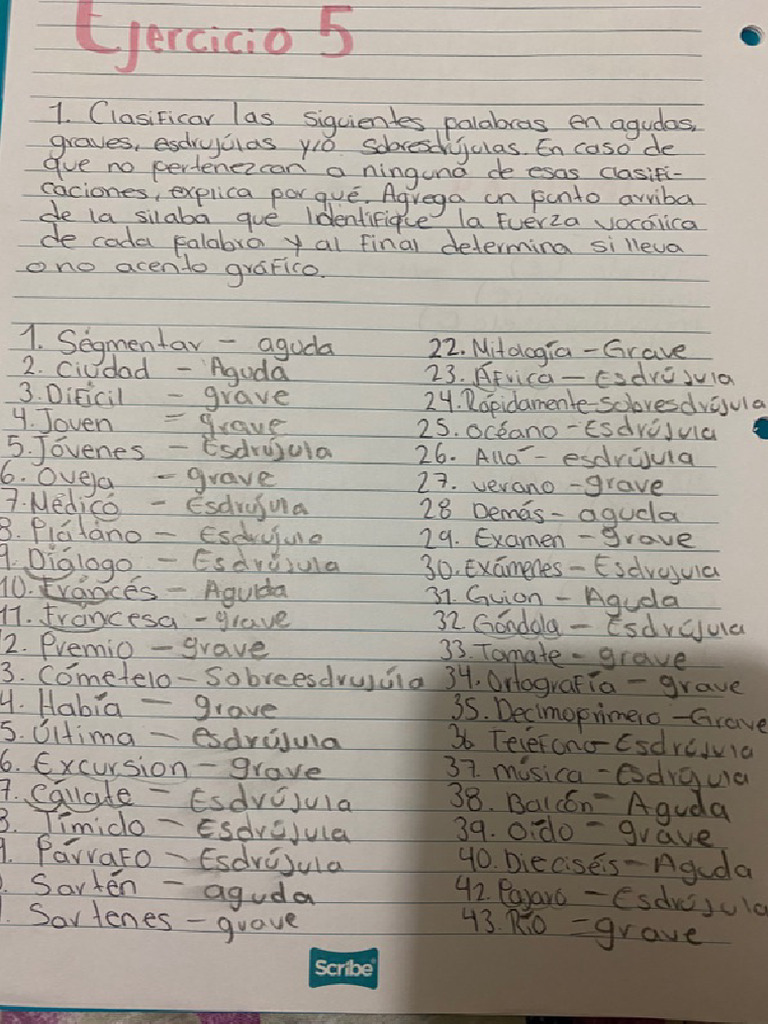 Ejercicio 5
1. Clasificar las siguientes palabras en agudas,
graves, esdrujúlas y/o sobresdrújulas. En caso de
que no pertenezcan a ninguna de esas clasifi-
caciones, explica por qué. Agrega un punto arriba
de la silaba que Identifique la Fuerza vocálica
de cada palabra y al final determina si lleva
o no acento gráfico.
1. Ségmentar - aguda
2. Ciudad - Aguda
3. Difícil - grave
4. Joven = grave
5. Jóvenes - Esdrújula
6. Oveja - grave
7. Médico - Esdrújula
8. Plátano - Esdrújula
9. Diálogo - Esdrújula
10. Francés - Aguda
11. Francesa - grave
2. Premio - grave
3. Cómetelo - Sobreesdrujúla
4. Había - grave
5. Última - esdrújula
6. Excursion - grave
7. Cállate - Esdrújula
8. Tímido - Esdrújula
9. Párrafo - Esdrújula
Sartén - aguda
Sartenes - grave
22. Mitología - Grave
23. África - Esdrújula
24. Rápidamente - Sobresdrújula
25. Océano - Esdrújula
26. Allá - esdrújula
27. verano - grave
28 Demás - aguda
29. Examen - grave
30. Exámenes - Esdrujula
31. Guion - Aguda
32. Góndola - Esdrújula
33. Tomate - grave
34. Ortografía - grave
35. Decimoprimero - Grave
36 Teléfono - Esdrújula
37. música - esdrújula
38. Balcón - Aguda
39. Oído - grave
40. Dieciséis - Aguda
42. Pajaro - Esdrújula
43. Río = grave
Scribe